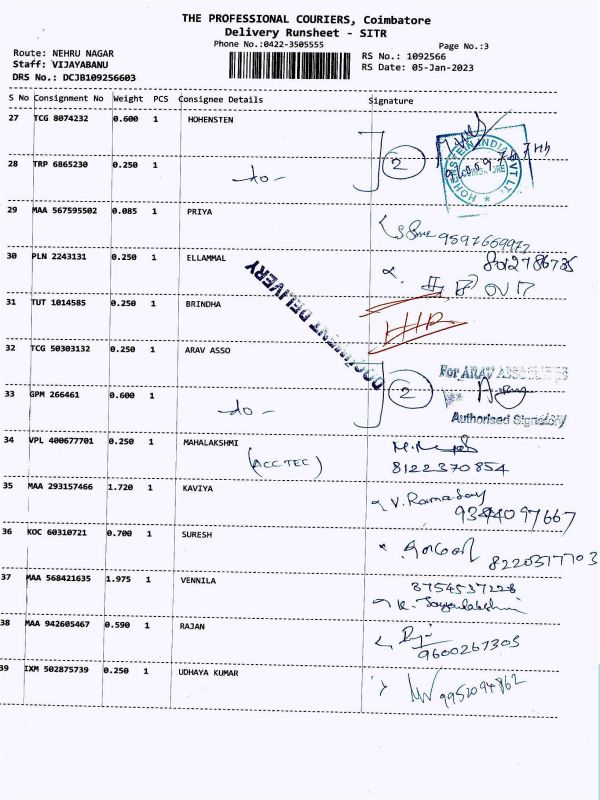 THE PROFESSIONAL COURIERS, Coimbatore
Delivery Runsheet - SITR
Phone No.:0422-3505555
Page No.:3
Route: NEHRU NAGAR
RS No.: 1092566
Staff: VIJAYABANU
RS Date: 05-Jan-2023
DRS No.: DCJB109256603
S No Consignment No Weight PCS Consignee Details Signature
27 TCG 8074232 0.600 1 HOHENSTEN
2
HOHENSTEIN INDIA PVT LTD
28 TRP 6865230 0.250 1
-do-
29 MAA 567595502 0.085 1 PRIYA
9597669972
30 PLN 2243131 0.250 1 ELLAMMAL
8012786735
31 TUT 1014585 0.250 1 BRINDHA
DOCUMENT DELIVERY
32 TCG 50303132 0.250 1 ARAV ASSO
2
For ARAV ASSOCIATES
33 GPM 266461 0.600 1
-do-
Authorised Signatory
34 VPL 400677701 0.250 1 MAHALAKSHMI
(ACCTEC)
8122370854
35 MAA 293157466 1.720 1 KAVIYA
V. Ramadary
9344097667
36 KOC 60310721 0.700 1 SURESH
8220377703
37 MAA 568421635 1.975 1 VENNILA
8754537228
K. Jayalakshmi
38 MAA 942605467 0.590 1 RAJAN
9600267303
39 IXM 502875739 0.250 1 UDHAYA KUMAR
9952094862